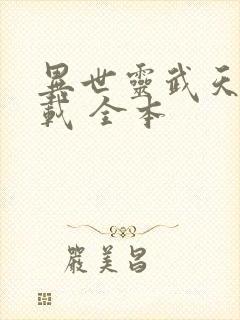 異世靈武天
載 全本
嚴美昌